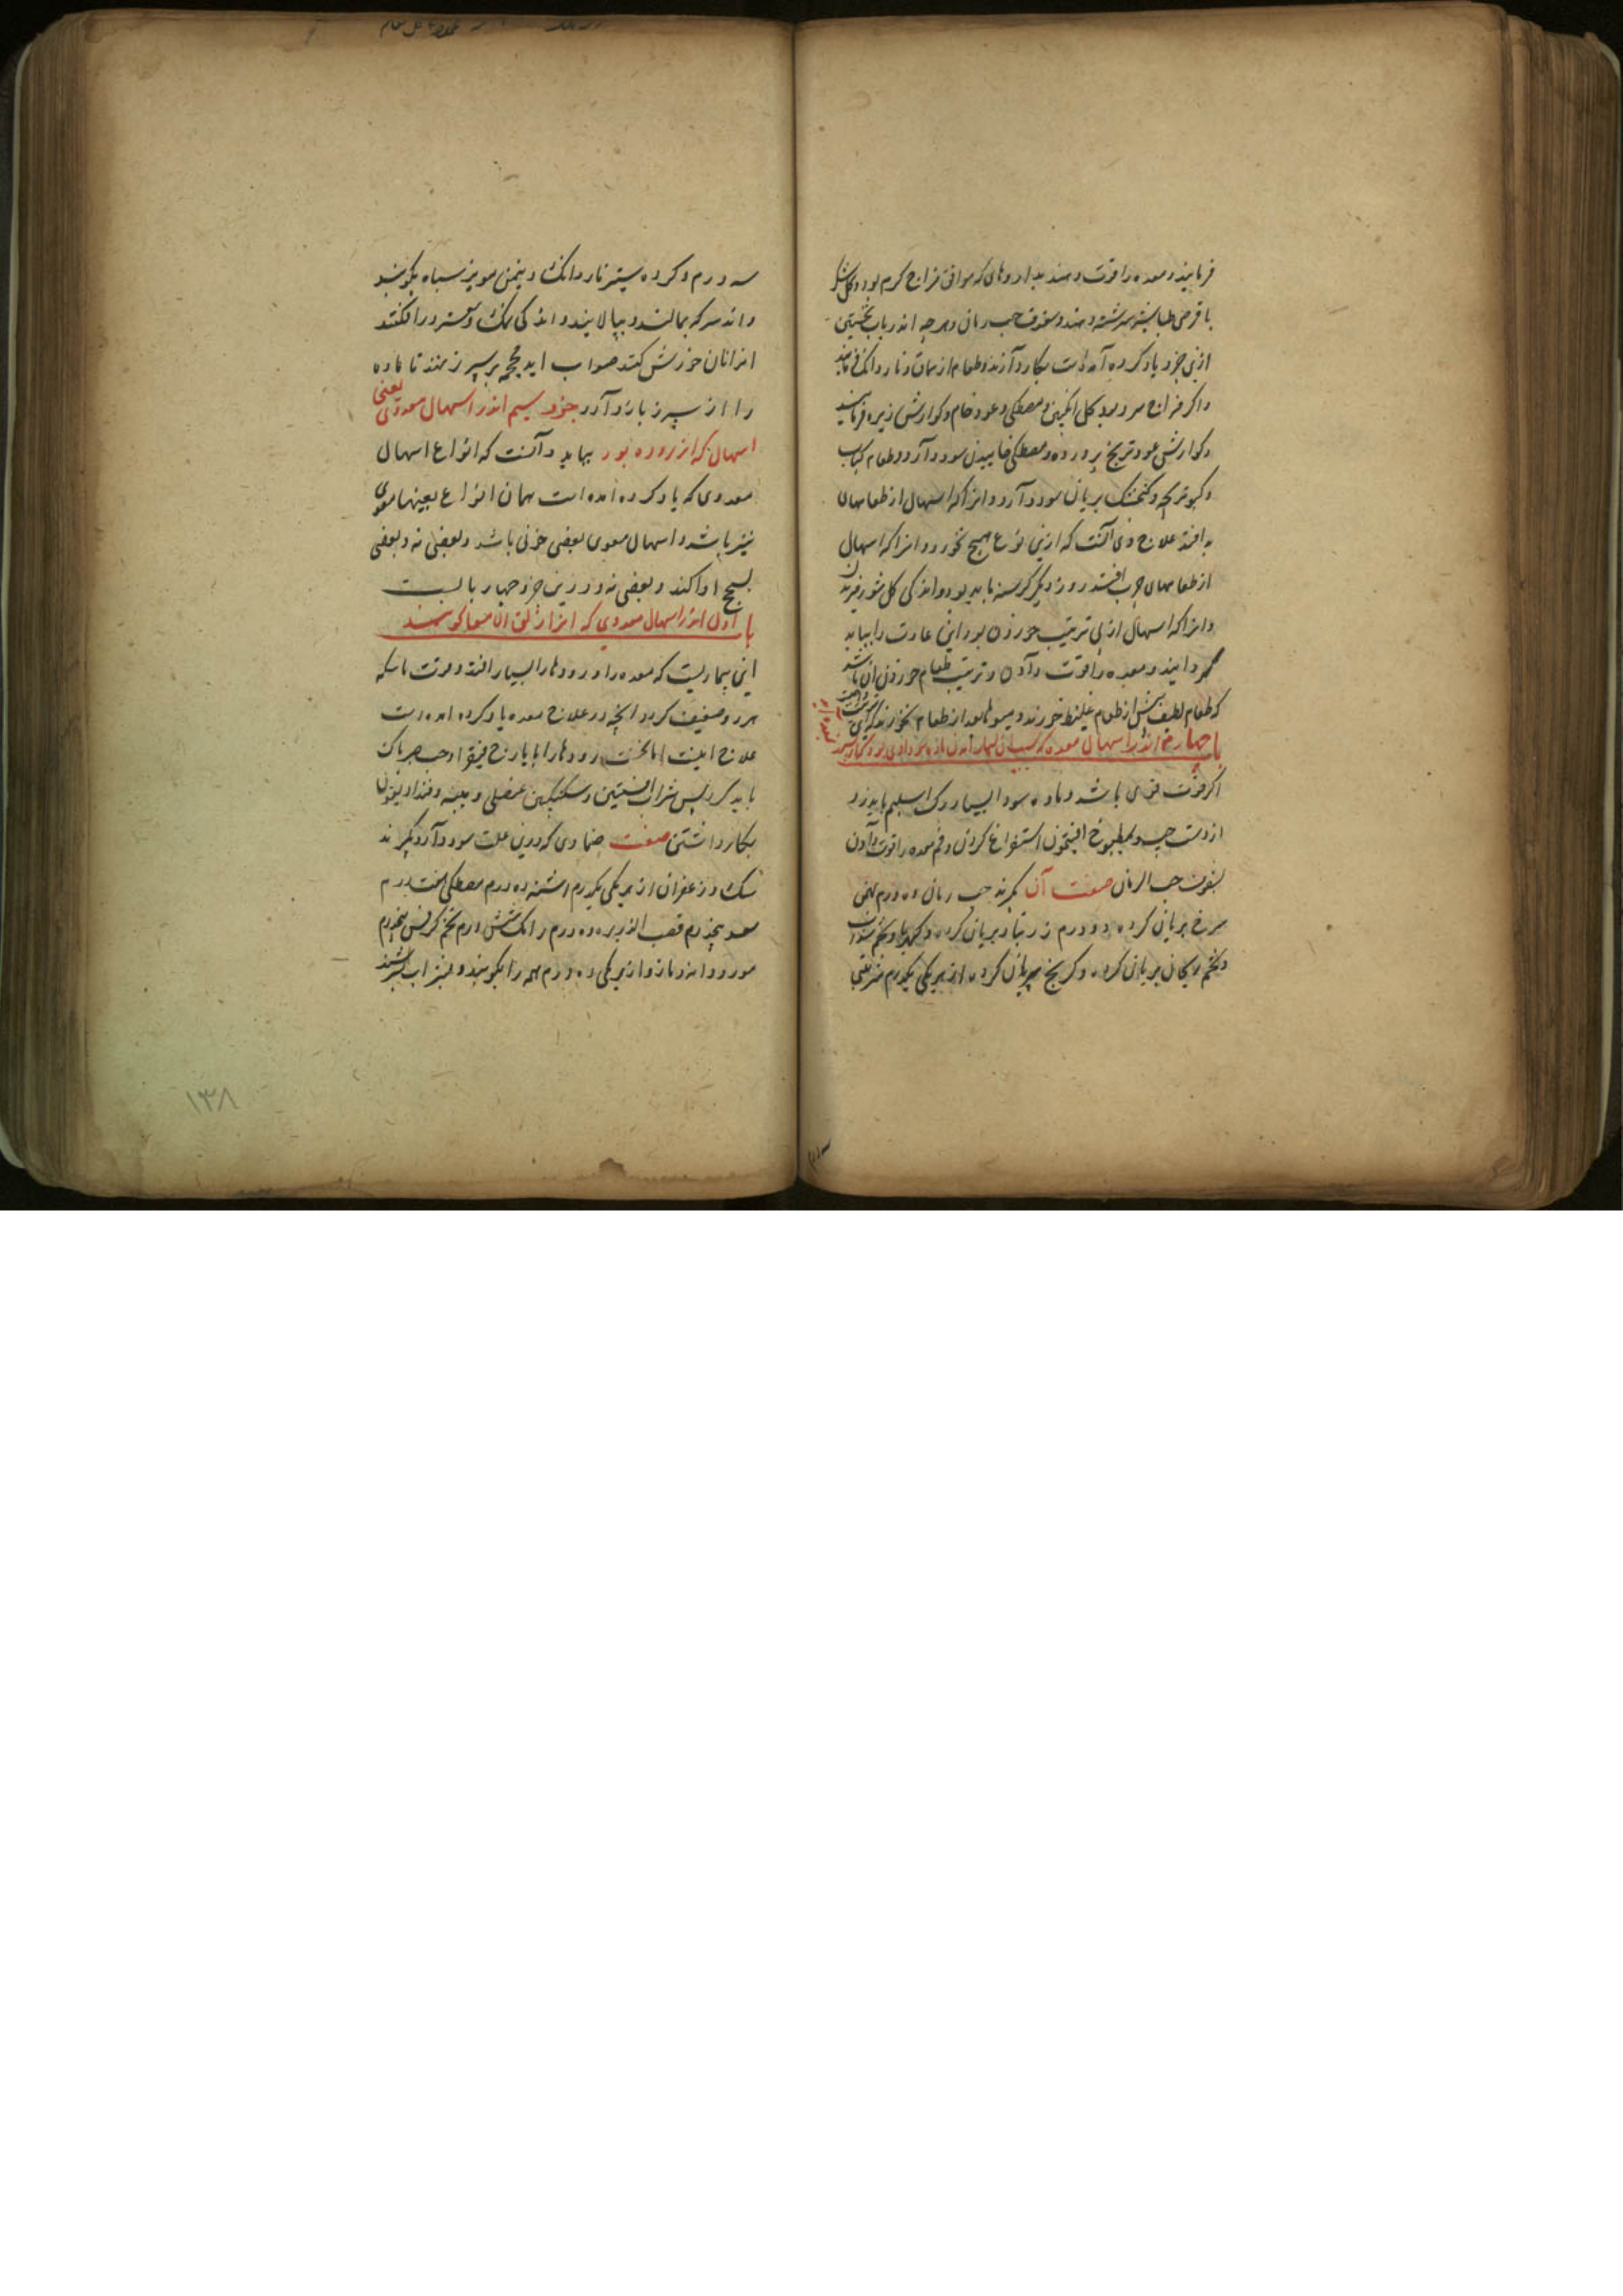 فرمایند و معده را قوت دهند بداروهای که موافق مزاج کرم بود و کل شکر
با قرص طباشیر سرشته دهند و سفوف حب رمان و هرچه اندر باب نخستین
ازین جزو یاد کرده آمده است بکار دارند و طعام از سماق و نار دانک فرمایند
و اکر مزاج سرد بود کل انکبین و مصطکی و عود خام و کوارش زیره فرمایند
و کوارش عود و ترنج پرورده و مصطکی خاییدن سود دارد و طعام کباب
و کبوتر بچه و کنجشک بریان سود دارد و انرا که اسهال از طعامهای
به افتد علاج وی آنست که ازین نوع هیچ نخورد و انرا که اسهال
از طعامهای چرب افتد روز دیکر کرسنه باید بود و اندکی کل شور
و انرا که اسهال از بی ترتیب خوردن بود این عادت را بباید
کردانیند و معده را قوت دادن و ترتیب طعام خوردن ان باشد
که طعام لطیف پیش از طعام غلیظ خورند و میوها بعد از طعام نخورند
باب چهارم اندر اسهال معده که سبب ان بسیار آمدن ماده سوداوی بود
اکر قوت قوی باشد و ماده سودا بسیار رک اسیلم باید زد
از دست چپ و بمطبوخ افتیمون استفراغ کردن و فم معده را قوت دادن
بسفوف حب الرمان صفت آن بکیرند حب رمان ده درم
سرخ بریان کرده دو درم زرنباد بریان کرده و کهربا و تخم
و تخم ریحان بریان کرده و کرنج بریان کرده از هر یکی یکدرم شربتی
سه درم و کرده سپستر نار دانک و پنجمن مویز سیاه بکوبند
و اندر سرکه بمالند و بپالایند و اندکی نمک و سعتر در افکنند
اندر انان خورش کنند صواب اید محجمه بر سپرز نهند تا ماده
را از سپرز باز دارد جزو سیم اندر اسهال معوی یعنی
اسهال که از روده بود بباید دانست که انواع اسهال
معدی که یاد کرده امده است همان انواع بعینها معوی
نیز باشد و اسهال معوی بعضی خونی باشد و بعضی نه و بعضی
بسحج ادا کند و بعضی نه و درین جزو چهار بابست
باب اول اندر اسهال معوی که انرا زلق الامعا کویند
این بیماریست که معده را و رودها را بسیار افتد و قوت ماسکه
هر دو ضعیف کردد انچه در علاج معده یاد کرده امده است
علاج اینست اما نخست رودها را بایارج فیقرا و حب صبر پاک
باید کرد پس شراب افسنتین و سکنکبین عنصلی و میبه و قنداریقون
بکار داشتن صفت ضمادی که درین علت سود دارد بکیرند
سک و زعفران از هر یکی یکدرم اشنه ده درم مصطکی هفت درم
سعد پنجدرم قصب الذریره ده درم رامک شش درم تخم کرفس پنجدرم
مورد دانه و مازو از هر یکی ده درم همه را بکوبند و بشراب بسرشند
۱۳۸